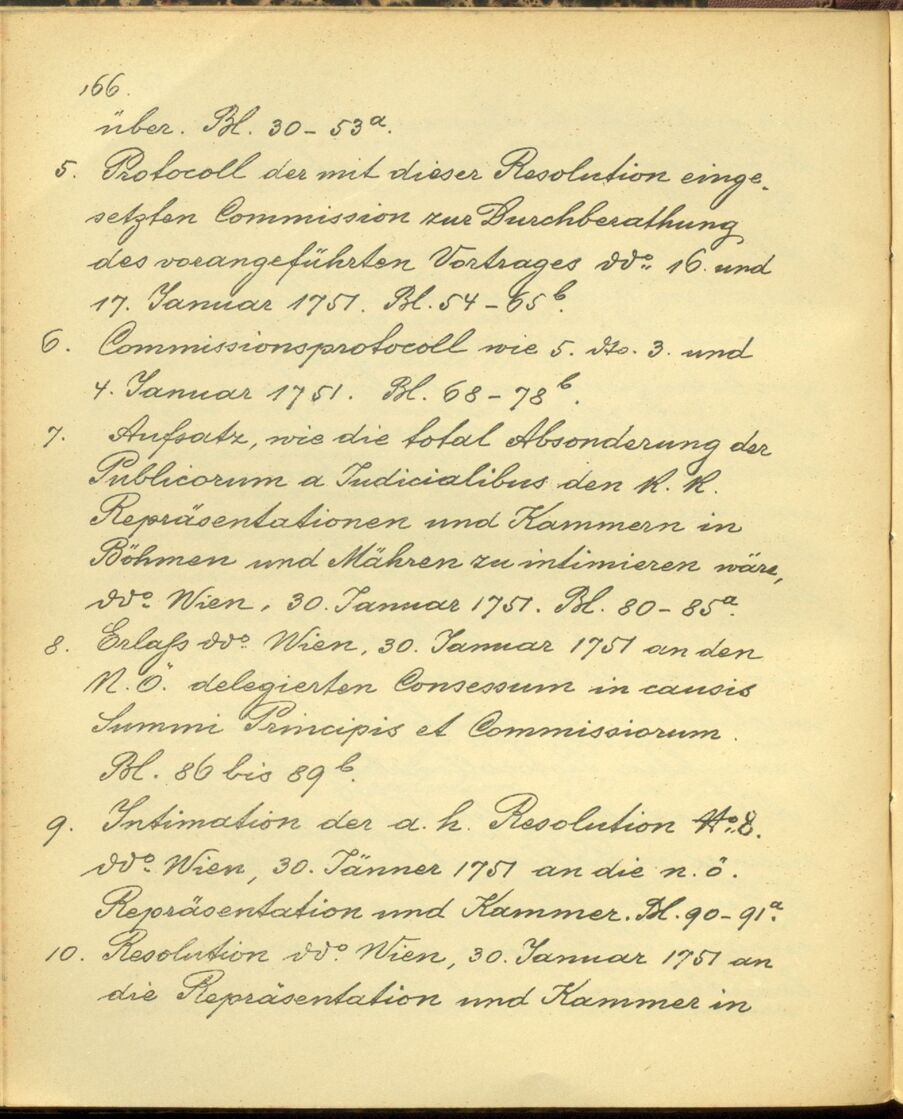 166.
über. Bl. 30 – 53ᵃ.
5. Protocoll der mit dieser Resolution einge-
setzten Commission zur Durchberathung
des vorangeführten Vortrages ddo. 16. und
17. Januar 1751. Bl. 54 – 65ᵇ.
6. Commissionsprotocoll wie 5. dto. 3. und
4. Januar 1751. Bl. 68 – 78ᵇ.
7. Aufsatz, wie die total Absonderung der
Publicorum a Judicialibus den K. K.
Repräsentationen und Kammern in
Böhmen und Mähren zu intimieren wäre,
ddo. Wien, 30. Januar 1751. Bl. 80 – 85ᵃ.
8. Erlaß ddo. Wien, 30. Januar 1751 an den
N. Ö. delegierten Consessum in causis
Summi Principis et Commissiorum.
Bl. 86 bis 89ᵇ.
9. Intimation der a. h. Resolution No. 8.
ddo. Wien, 30. Jänner 1751 an die n. ö.
Repräsentation und Kammer. Bl. 90 – 91ᵃ.
10. Resolution ddo. Wien, 30. Januar 1751 an
die Repräsentation und Kammer in